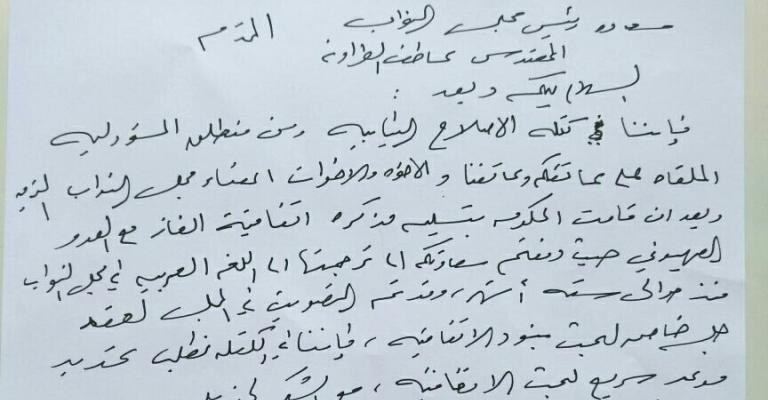 سعادة رئيس مجلس النواب المكرم
المهندس عاطف الطراونه
السلام عليكم وبعد :
فإننا في كتله الاصلاح النيابيه ومن منطلق المسؤوليه
الملقاه على عاتقكم وعاتقنا والاخوه والاخوات اعضاء مجلس النواب
وبعد ان قامت الحكومه بتسليم مذكره اتفاقية الغاز مع العدو
الصهيوني حيث دفعتم سعادتكم الى ترجمتها الى اللغه العربيه في مجلس النواب
منذ حوالي سته أشهر، وقد تم التصويت في المجلس لعقد
جلسه خاصه لبحث بنود الاتفاقيه ، فإننا في الكتله نطلب تحديد
موعد سريع لبحث الاتفاقيه ، مع الشكر